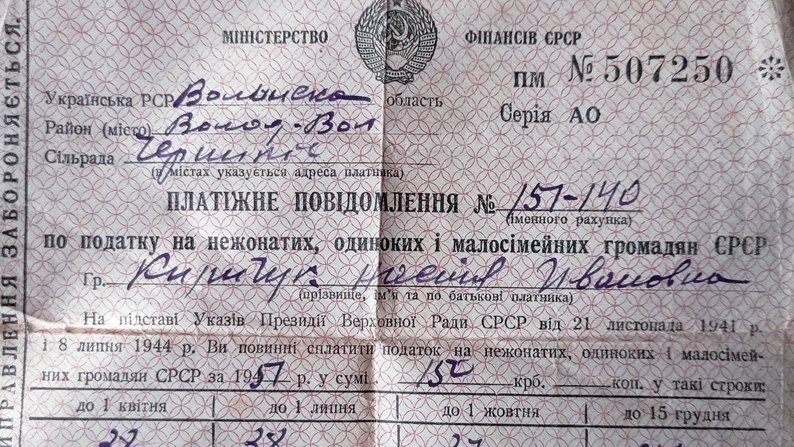 МІНІСТЕРСТВО ФІНАНСІВ ЄРСР
ПМ № 507250 *
Серія АО
Українська РСР Волынска область
Район (місто) Волод-Вол
Сільрада
(в містах указується адреса платника)
ПЛАТІЖНЕ ПОВІДОМЛЕННЯ № 151-140
(іменного рахунка)
по податку на нежонатих, одиноких і малосімейних громадян ЄРЄР
Гр. Киричук Ивановна
(прізвище, ім'я та по батькові платника)
На підставі Указів Президії Верховної Ради СРСР від 21 листопада 1941 р.
і 8 липня 1944 р. Ви повинні сплатити податок на нежонатих, одиноких і малосімей-
них громадян СРСР за 1951 р. у сумі 150 крб. коп. у такі строки:
до 1 квітня до 1 липня до 1 жовтня до 15 грудня
38 38 37
ВИПРАВЛЕННЯ ЗАБОРОНЯЄТЬСЯ.